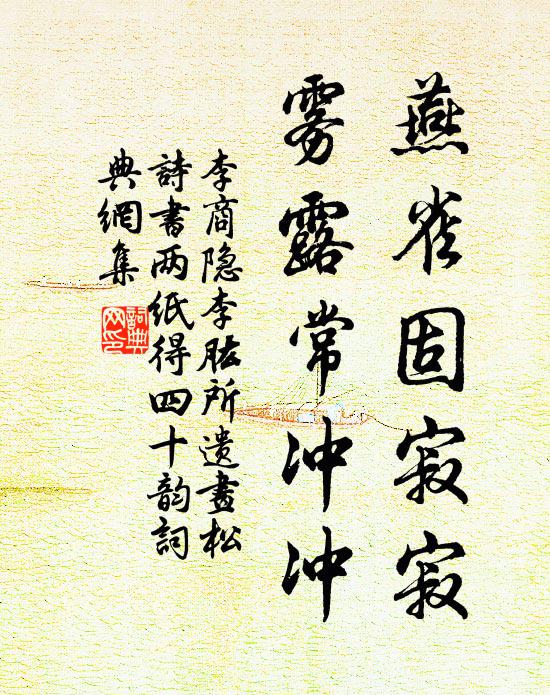 燕雀固寂寂
雾露常冲冲
李商隐李肱所遗畫松
詩書两紙得四十韵詞
典網集
詞典网印